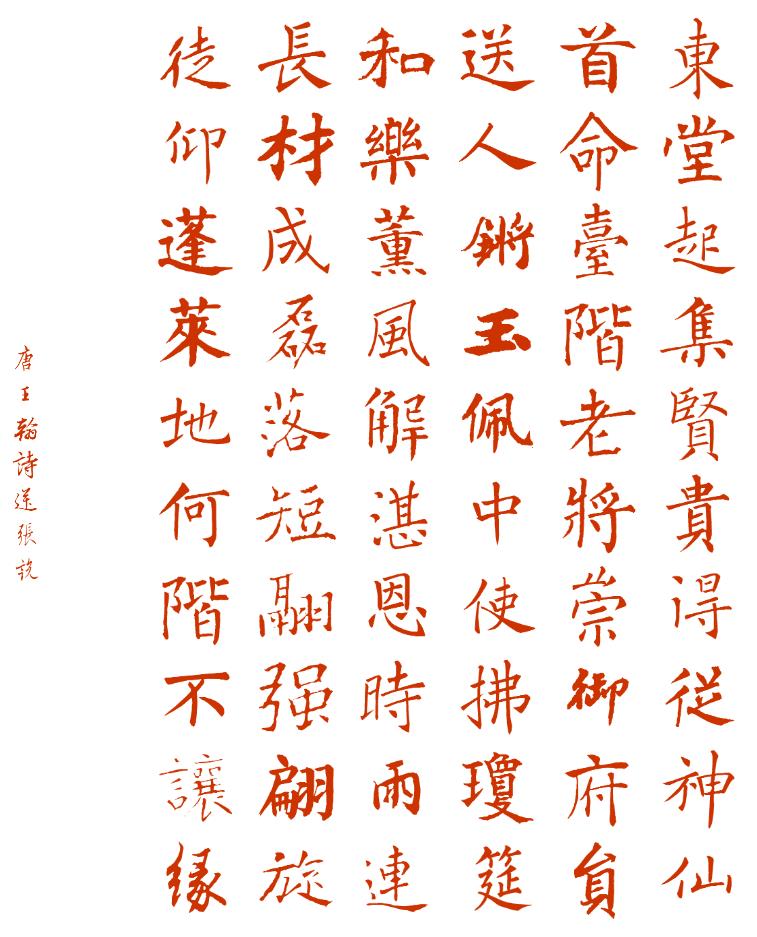 東堂起集賢貴得從神仙
首命臺階老將崇御府員
送人鏘玉佩中使拂瓊筵
和樂薰風解湛恩時雨連
長材成磊落短翮强翩旋
徒仰蓬萊地何階不讓緣
唐王翰詩送張說